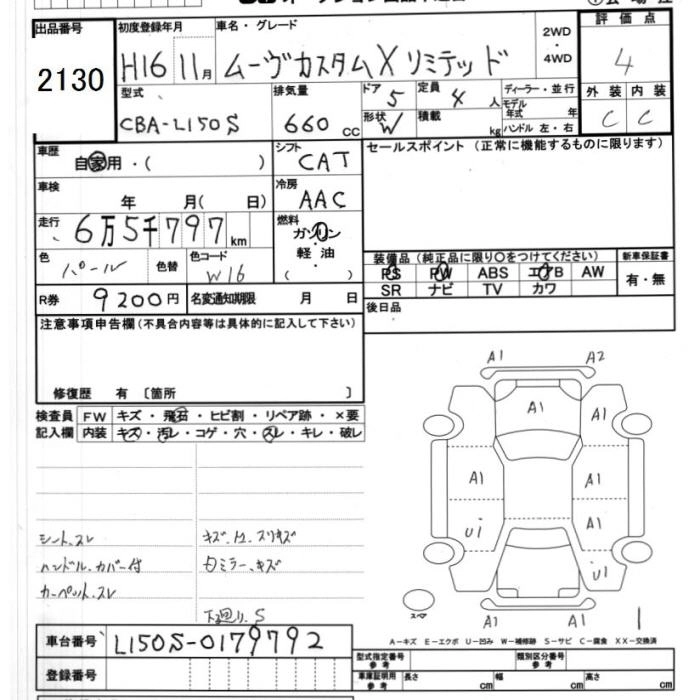 出品番号 2130
初度登録年月 H16 11月
車名・グレード ムーヴカスタムX リミテッド
2WD・4WD
評価点 4
外装 C 内装 C
型式 CBA-L150S
排気量 660 CC
ドア 5 定員 4 人
形状 W 積載 kg
ディーラー・並行
モデル年式 年
ハンドル 左・右
車歴 自家用・( )
シフト CAT
セールスポイント (正常に機能するものに限ります)
車検 年 月( 日)
冷房 AAC
走行 6万5千797km
燃料 ガソリン・軽油 ( )
色 パール 色替 色コード W16
装備品 (純正品に限り○をつけてください) 新車保証書
PS PW ABS エアB AW 有・無
SR ナビ TV カワ
R券 9200円 名変通知期限 月 日
後日品
注意事項申告欄(不具合内容等は具体的に記入して下さい)
修復歴 有 〔箇所 〕
検査員 FW キズ・飛石・ヒビ割・リペア跡・×要
記入欄 内装 キズ・汚レ・コゲ・穴・スレ・キレ・破レ
A1 A2
A1 A1
A1 A1
U1 A1
U1
スペア
A1 A1
シート、スレ
ハンドル、カバー付
カーペット、スレ
下廻り、S
A-キズ E-エクボ U-凹み W-補修跡 S-サビ C-腐食 XX-交換済
車台番号 L150S-0179792
登録番号
型式指定番号 参考 類別区分番号 参考
車庫証明用 参考 長さ cm 幅 cm 高さ cm